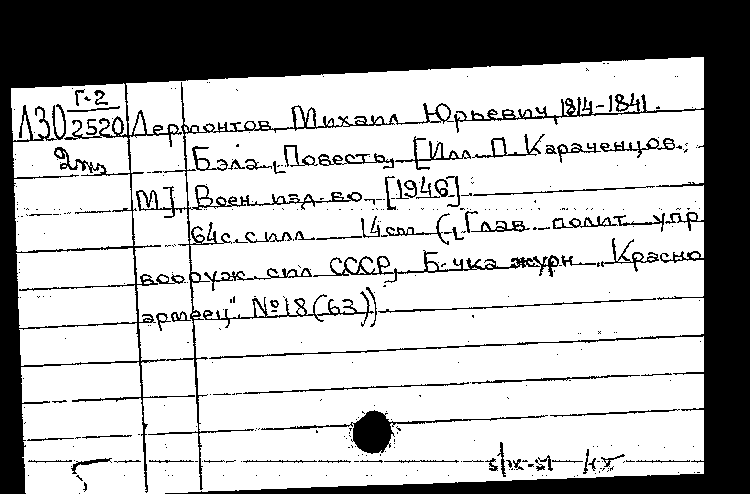 Г-2
Л30 2520 Лермонтов, Михаил Юрьевич, 1814-1841.
2экз Бэла, Повесть, [Илл. П. Караченцов.,
М], Воен. изд-во, [1946].
64с. с илл. 14cm (, Глав. полит. упр
вооруж. сил СССР, Б-чка журн. „Красно
армеец". №18(63)).
5/IX-51